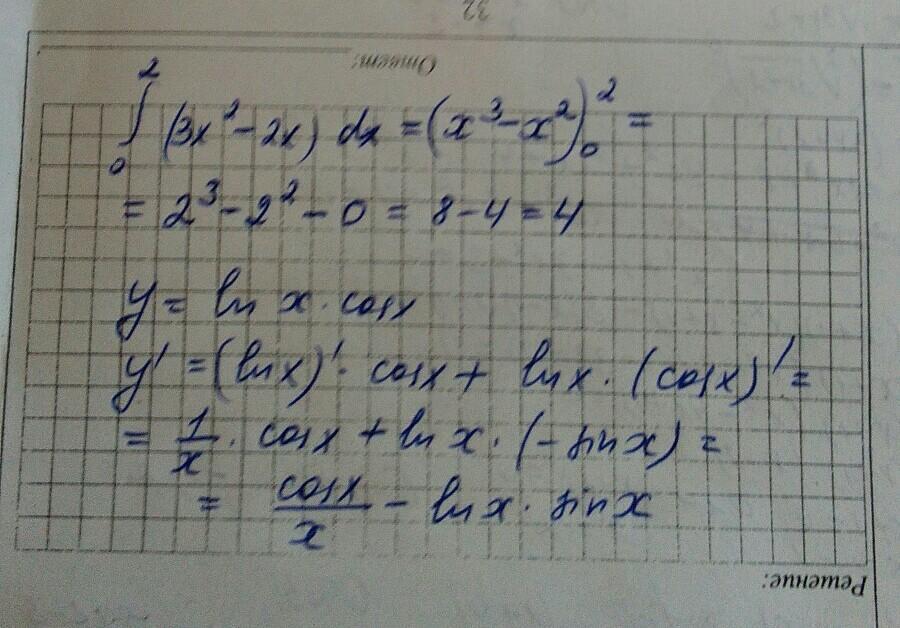 32
Ответ:
∫₀² (3x² - 2x) dx = (x³ - x²)₀² =
= 2³ - 2² - 0 = 8 - 4 = 4
y = ln x · cos x
y' = (ln x)' · cos x + ln x · (cos x)' =
= 1/x · cos x + ln x · (- sin x) =
= cos x / x - ln x · sin x
Решение: